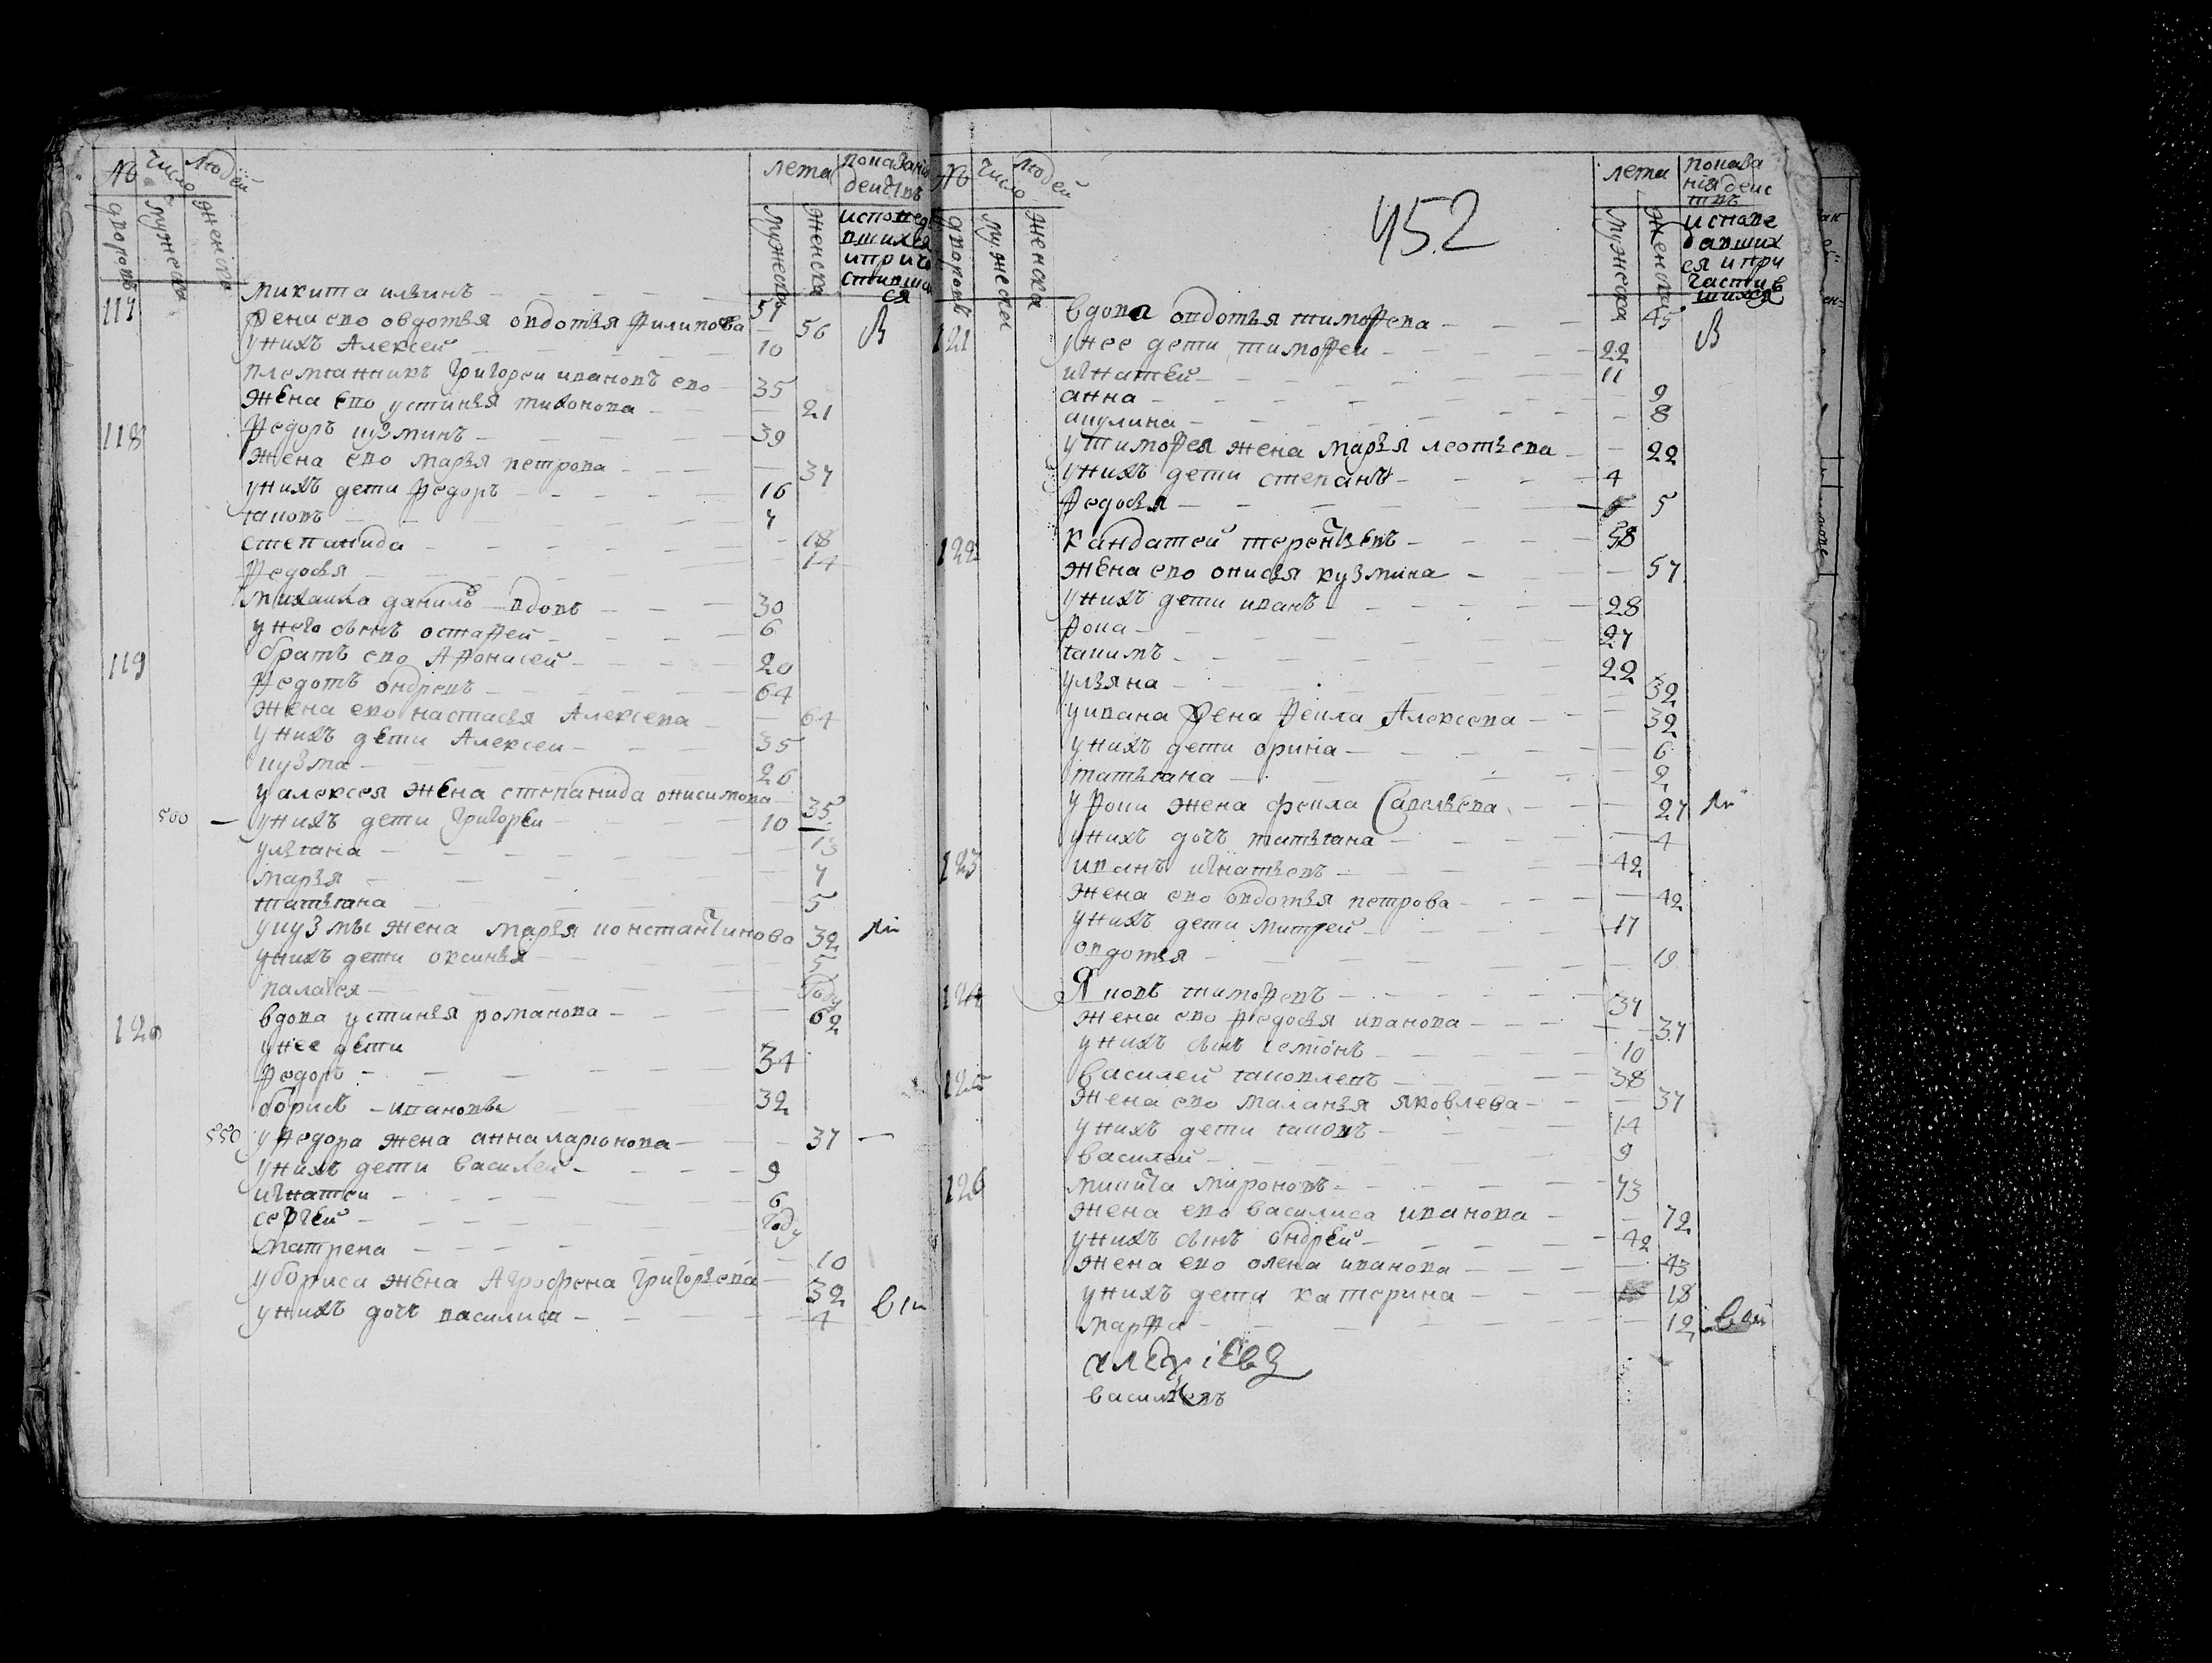 № число людей лета показание действъ
дворовъ мужеска женска мужеска женска исповедавшихся и причастившихся
117 микита илвинъ — 57
жена ево овдотья филипова — 56 в
у нихъ Алексей — 10
племянникъ григореи ивановъ ево — 35
жена ево устинья тихонова — 21
118 федоръ кузминъ — 39
жена ево марья петрова — 37
у нихъ дети федоръ — 16
іаковъ — 7
степанида — 18
федосья — 14
михаила данилъ вдовъ — 30
у него сынъ остафей — 6
братъ ево Афонасей — 20
119 федотъ ондревъ — 64
жена ево настасья Алексева — 64
у нихъ дети Алексеи — 35
кузма — 26
у алексея жена степанида онисимова — 35
500 — у нихъ дети григореи — 10
улиана — 13
марья — 7
татьіана — 5
у кузмы жена марья константинова 32
у нихъ дети оксинья — 5
палагея — году
120 вдова устинья романова — 62
у нее дети
федоръ — 34
борисъ — ивановы 32
550 у федора жена анна лариіонова — 37 —
у нихъ дети василей — 9
игнатеи — 6
сергей — году
матрена — 10
у бориса жена Агрофена григорьева — 32
у нихъ дочь василиса — 4
№ число людей лета показания действъ
дворовъ мужеска женска мужеска женска исповедавшихся и причастившихся
452
121 вдова овдотья тимофева — 45 в
у нее дети тимофеи — 22
игнатей — 11
анна — 9
акулина — 8
у тимофея жена марья леотьева — 22
у нихъ дети степанъ — 4
федосья — 5
122 кандатей терентьевъ — 58
жена ево онисья кузмина — 57
у нихъ дети иванъ — 28
фока — 27
іакимъ — 22
ульяна — 32
у ивана жена фекла Алексева — 32
у нихъ дети орина — 6
татьіана — 2
у фоки жена фекла Савельева — 27
у нихъ дочь татьіана — 4
123 иванъ игнатьевъ — 42
жена ево овдотья петрова — 42
у нихъ дети митрей — 17
овдотья — 19
124 Яковъ тимофевъ — 37
жена ево федосья иванова — 37
у нихъ сынъ семіонъ — 10
125 василей іаковлевъ — 38
жена ево маланья яковлева — 37
у нихъ дети іаковъ — 14
василей — 9
126 микита мироновъ — 73
жена ево василиса иванова — 72
у нихъ сынъ ондрей — 42
жена ево олена иванова — 43
у нихъ дети катерина — 18
марфа — 12
алеѯіевъ
васильевъ